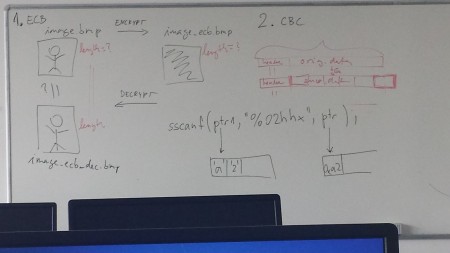 1. ECB
image.bmp
ENCRYPT
image.ecb.bmp
length = ?
length = ?
DECRYPT
length
image.ecb_dec.bmp
2. CBC
orig. data
header
header
sscanf(ptr1, "%02hhx", ptr);
'a' '2'
0xa2